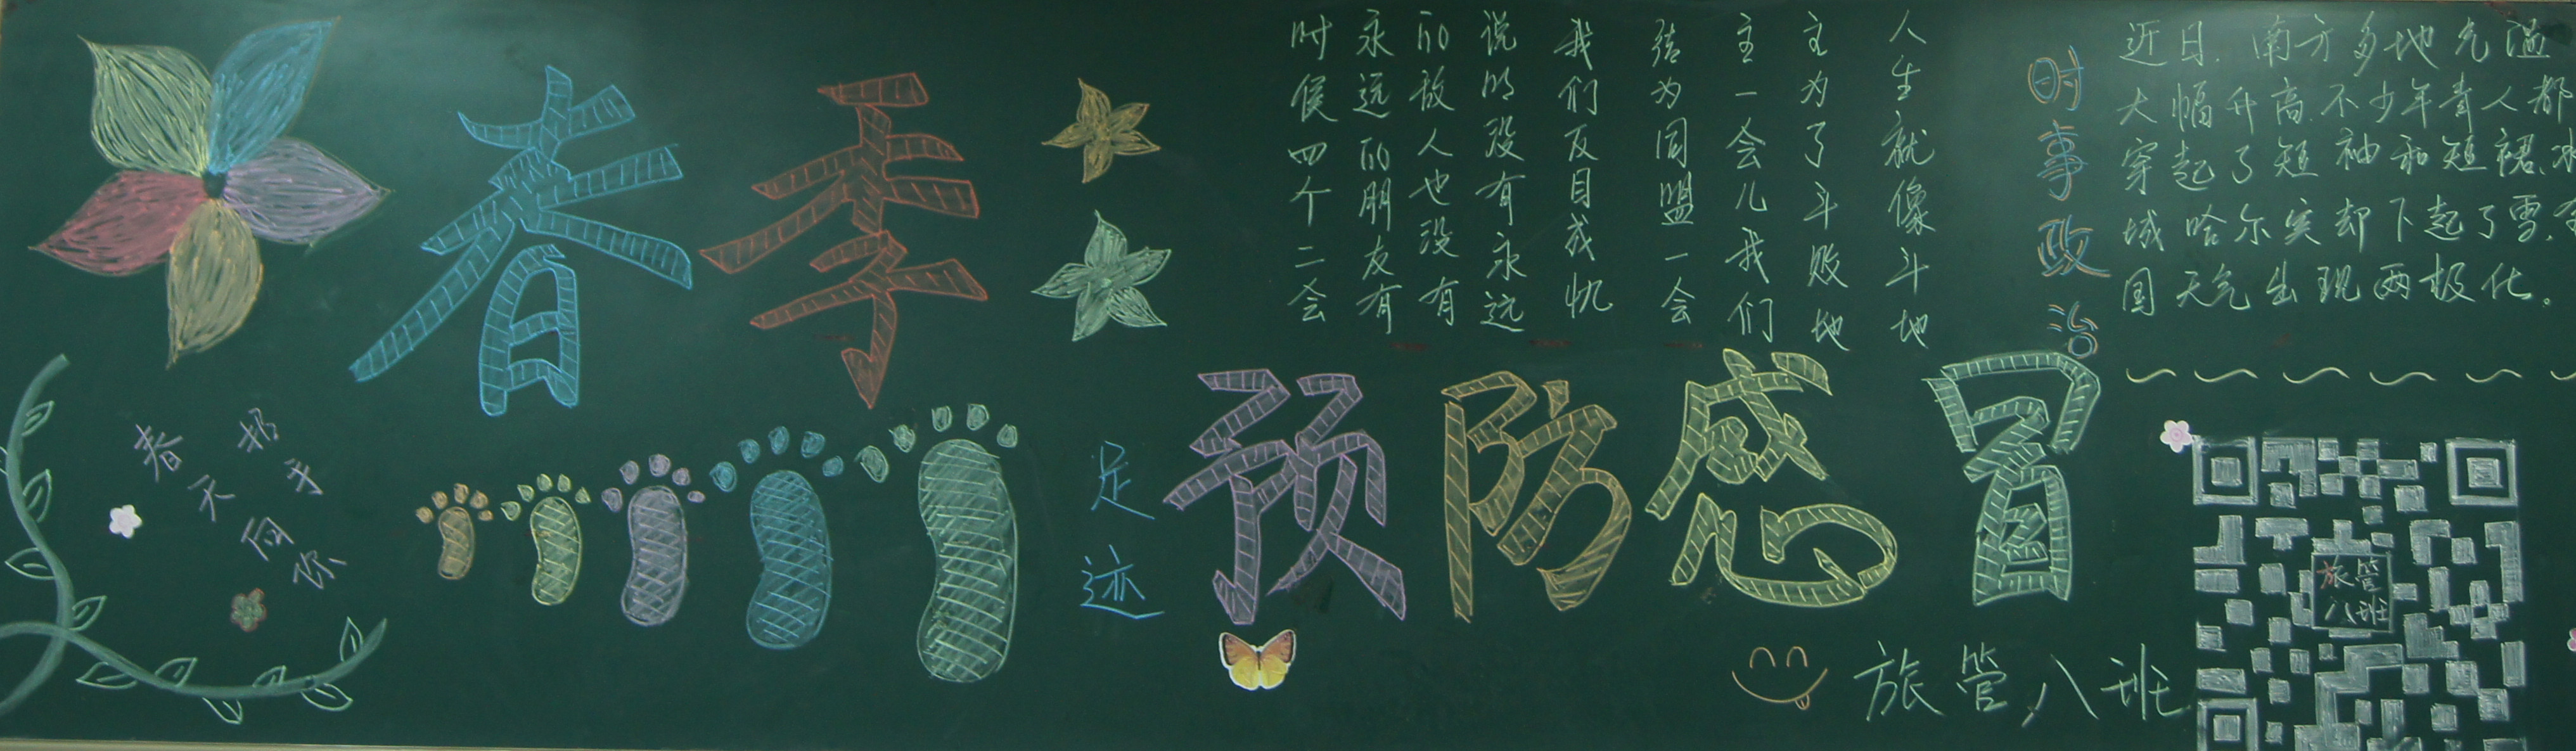 春季
人生就像斗地
主为了斗败地
主一会儿我们
结为同盟一会
我们反目成仇
说明没有永远
的敌人也没有
永远的朋友有
时侯四个二会
时事政治
近日.南方多地气温
大幅升高.不少年青人都
穿起了短袖和短裙.冰
城哈尔宾却下起了雪.全
国天气出现两极化。
春天
招手
向你
足迹
预防感冒
旅管八班
旅管
八班